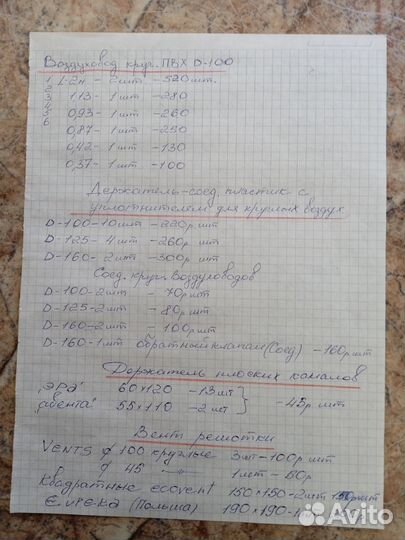 Воздуховод кругл. ПВХ D-100
1 L-2м - 2шт - 520 шт.
2
3 1,13 - 1шт - 280
4
5 0,93 - 1шт - 260
6
0,87 - 1шт - 250
0,42 - 1шт - 130
0,37 - 1шт - 100
Держатель-соед. пластик. с
уплотнителем для круглых воздух
D-100-10шт - 220р шт
D-125- 4шт - 260р. шт
D-160- 2шт - 300р шт
Соед. кругл. воздуховодов
D-100-2шт - 70р шт
D-125-2шт - 80р шт
D-160-2шт - 100р шт
D-160-1шт обратный клапан (Соед) - 160р шт
Держатель плоских каналов
"ЭРА" 60х120 - 13шт
- 45р шт
55х110 - 2шт
Вент решотки
Vents ф 100 круглые 3шт - 100р
ф 45 —"— 1шт - 50р
Квадратные ecovent 150х150-2шт 150р шт
(Польша) 190х190-1
Avito